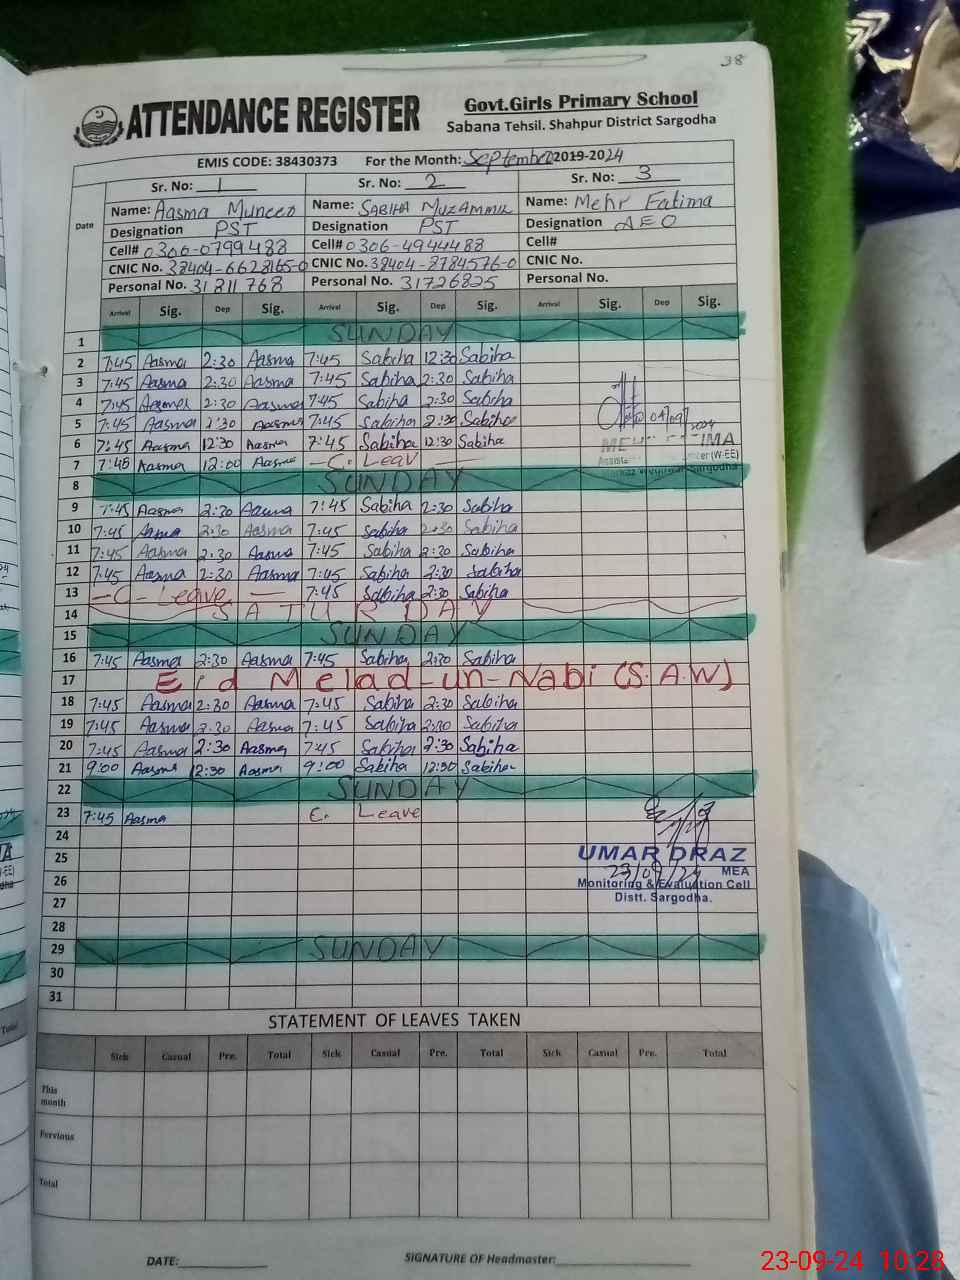 38
ATTENDANCE REGISTER
Govt.Girls Primary School
Sabana Tehsil. Shahpur District Sargodha
EMIS CODE: 38430373 For the Month: September 2019-2024
Date Sr. No: 1 Sr. No: 2 Sr. No: 3
Name: Aasma Muneer Name: SABIHA MUZAMMIL Name: Mehr Fatima
Designation PST Designation PST Designation AEO
Cell# 0306-0799488 Cell# 0306-4944488 Cell#
CNIC No. 38404-6628165-0 CNIC No. 38404-8784576-0 CNIC No.
Personal No. 31211768 Personal No. 31726825 Personal No.
Arrival Sig. Dep Sig. Arrival Sig. Dep Sig. Arrival Sig. Dep Sig.
1 SUNDAY
2 7:45 Aasma 2:30 Aasma 7:45 Sabiha 12:30 Sabiha
3 7:45 Aasma 2:30 Aasma 7:45 Sabiha 2:30 Sabiha
4 7:45 Aasma 2:30 Aasma 7:45 Sabiha 2:30 Sabiha
5 7:45 Aasma 2:30 Aasma 7:45 Sabiha 2:30 Sabiha 04/09/2024
6 7:45 Aasma 12:30 Aasma 7:45 Sabiha 12:30 Sabiha
7 7:45 Aasma 12:00 Aasma - C. Leav -
8 SUNDAY
9 7:45 Aasma 2:30 Aasma 7:45 Sabiha 2:30 Sabiha
10 7:45 Asma 2:30 Aasma 7:45 Sabiha 2:30 Sabiha
11 7:45 Aasma 2:30 Aasma 7:45 Sabiha 2:30 Sabiha
12 7:45 Aasma 2:30 Aasma 7:45 Sabiha 2:30 Sabiha
13 - C - Leave - 7:45 Sabiha 2:30 Sabiha
14 SATURDAY
15 SUNDAY
16 7:45 Aasma 2:30 Aasma 7:45 Sabiha 2:30 Sabiha
17 Eid Melad-un-Nabi (S.A.W)
18 7:45 Aasma 2:30 Aasma 7:45 Sabiha 2:30 Sabiha
19 7:45 Aasma 2:30 Aasma 7:45 Sabiha 2:30 Sabiha
20 7:45 Aasma 2:30 Aasma 7:45 Sabiha 2:30 Sabiha
21 9:00 Aasma 12:30 Aasma 9:00 Sabiha 12:30 Sabiha
22 SUNDAY
23 7:45 Aasma C. Leave
24
25 UMAR DRAZ
23/09/24 MEA
26 Monitoring & Evaluation Cell
27 Distt. Sargodha.
28
29 SUNDAY
30
31
STATEMENT OF LEAVES TAKEN
Sick Casual Pre. Total Sick Casual Pre. Total Sick Casual Pre. Total
This month
Pervious
Total
DATE: SIGNATURE OF Headmaster:
23-09-24 10:28